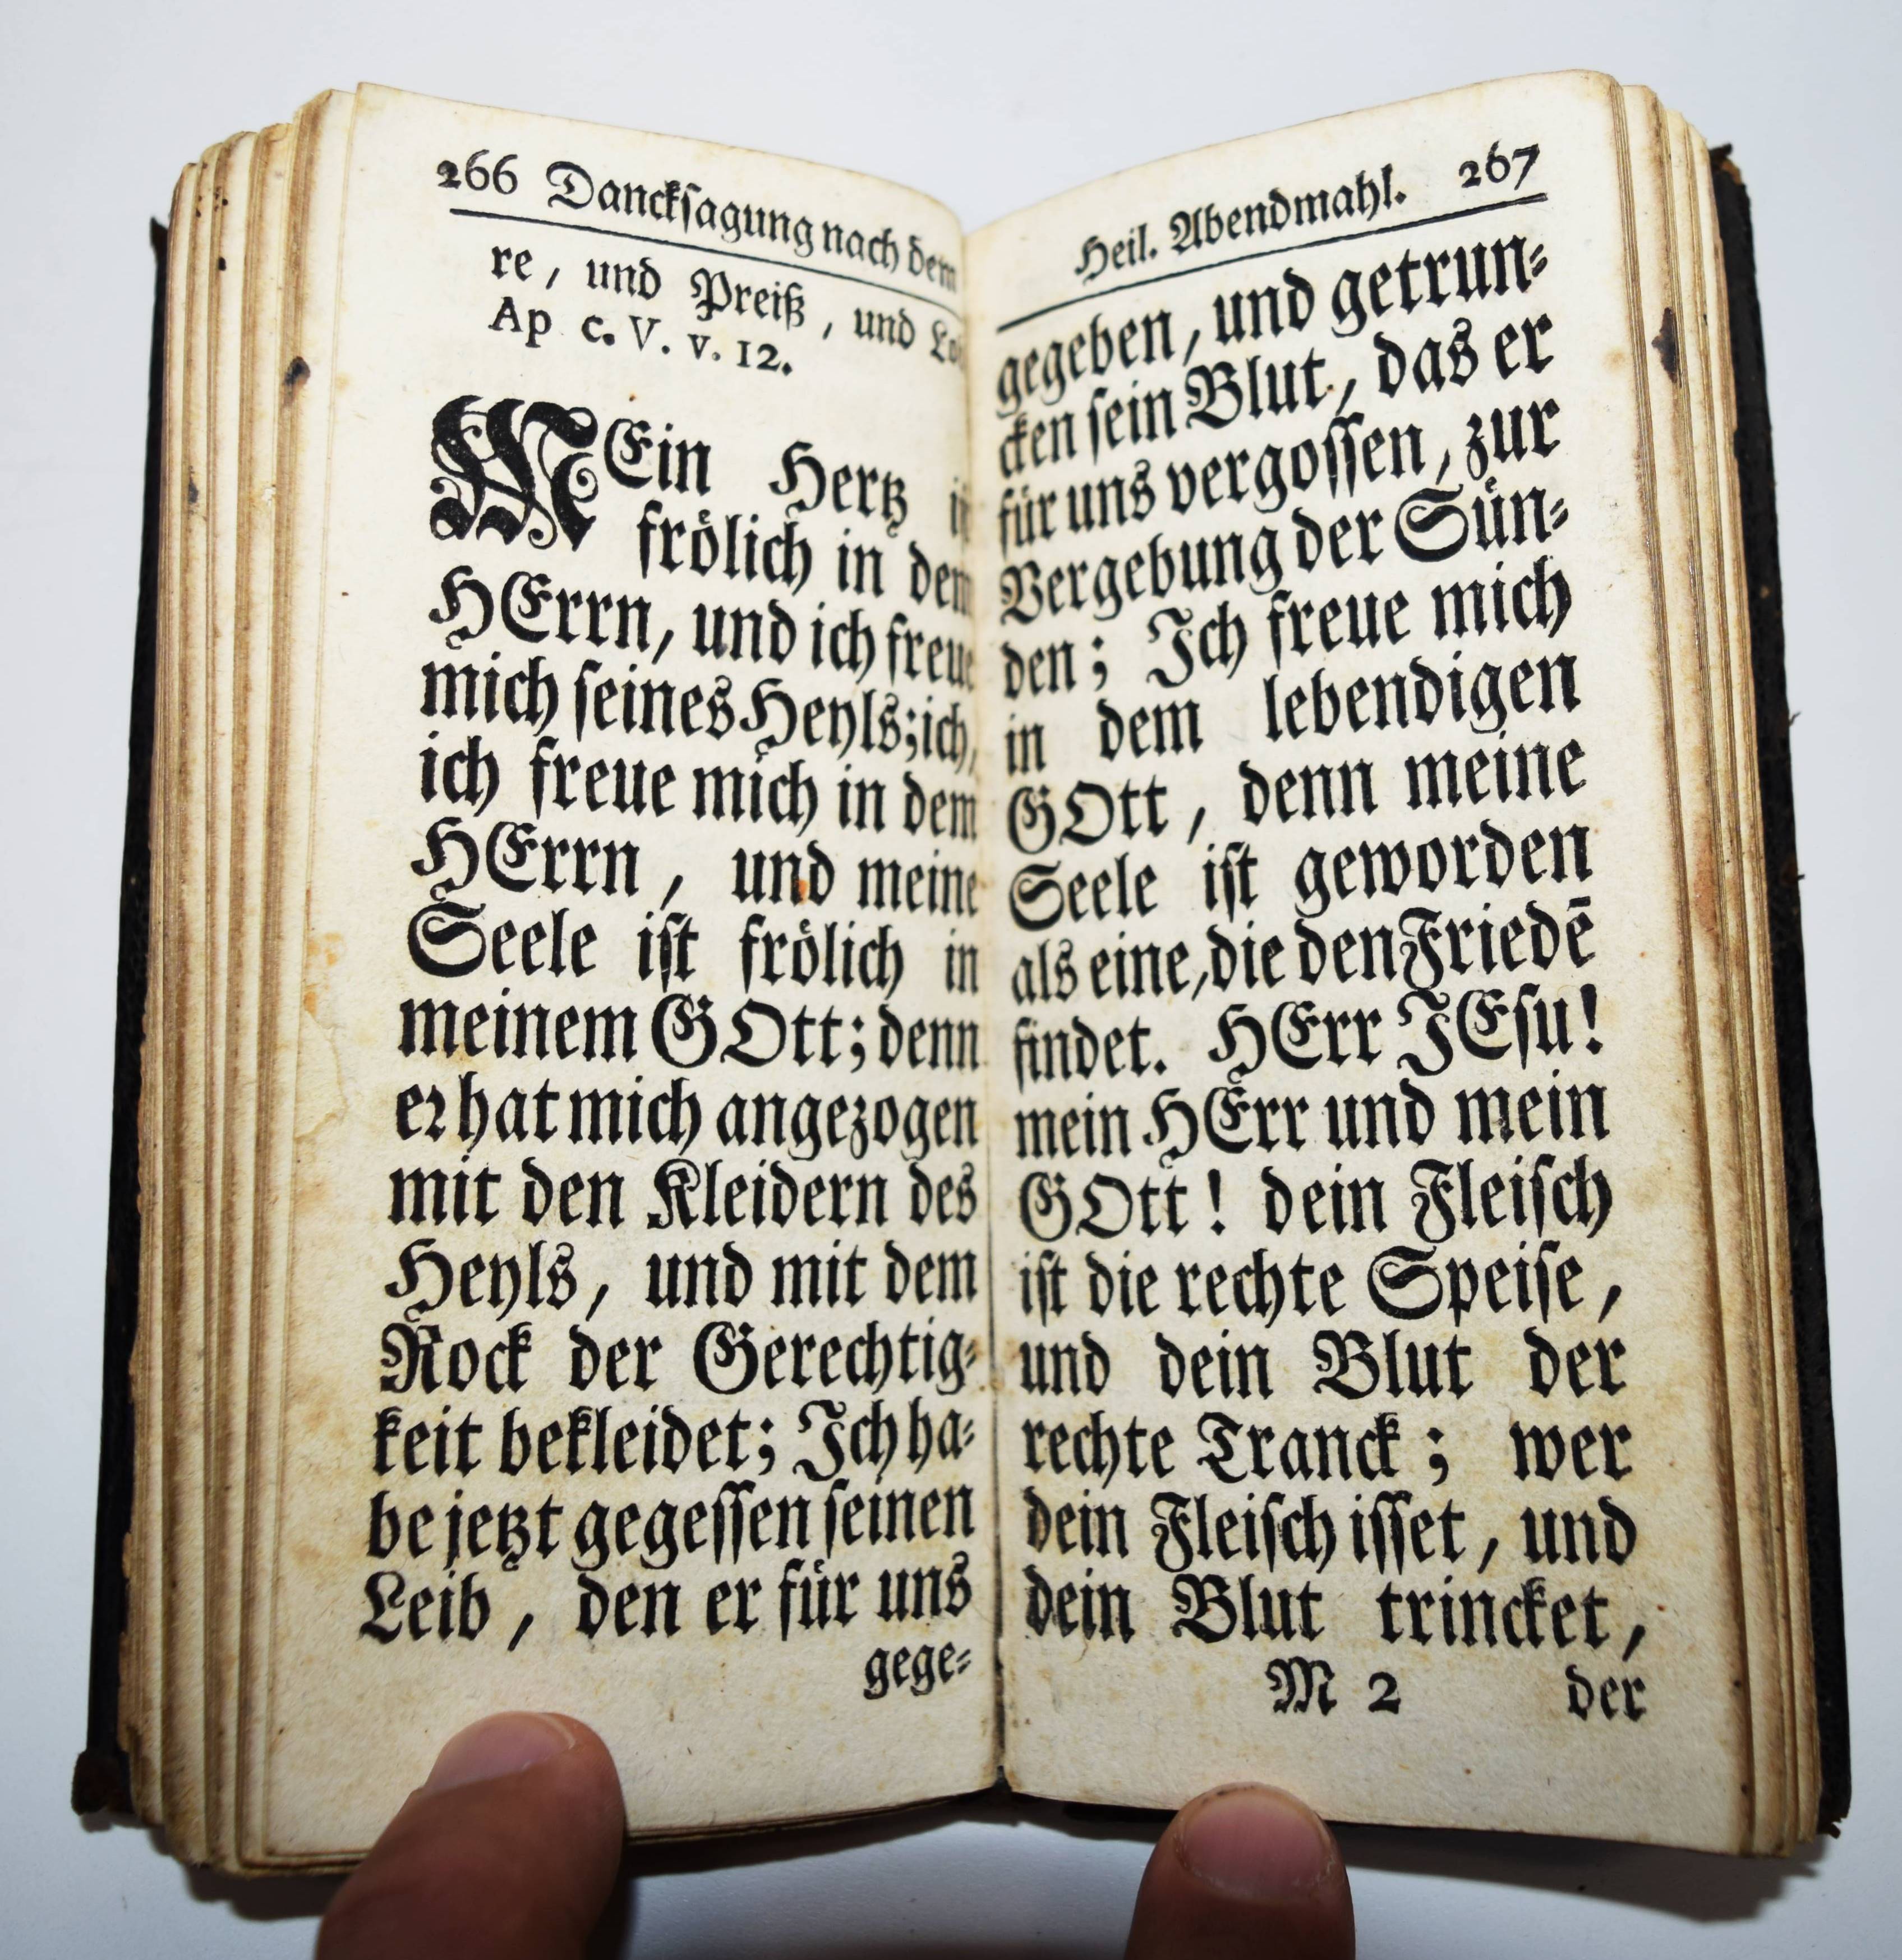 266 Dancksagung nach dem
re, und Preiß, und
Ap c. V. v. 12.
MEin Hertz
frölich in dem
HErrn, und ich freue
mich seines Heyls; ich,
ich freue mich in dem
HErrn, und meine
Seele ist frölich in
meinem GOtt; denn
er hat mich angezogen
mit den Kleidern des
Heyls, und mit dem
Rock der Gerechtig-
keit bekleidet; Ich ha-
be jetzt gegessen seinen
Leib, den er für uns
gege-
Heil. Abendmahl. 267
gegeben, und getrun-
cken sein Blut, das er
für uns vergossen, zur
Vergebung der Sün-
den; Ich freue mich
in dem lebendigen
GOtt, denn meine
Seele ist geworden
als eine, die den Friedē
findet. HErr JEsu!
mein HErr und mein
GOtt! dein Fleisch
ist die rechte Speise,
und dein Blut der
rechte Tranck; wer
dein Fleisch isset, und
dein Blut trincket,
M 2 der